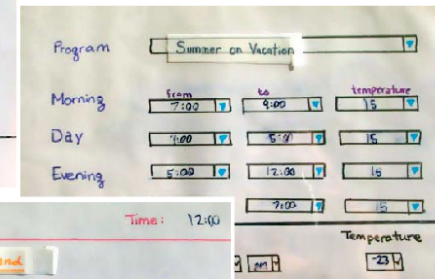 Program Summer on Vacation
from to temperature
Morning 7:00 9:00 15
Day 9:00 5:00 15
Evening 5:00 12:00 15
7:00 15
Time: 12:00
Temperature
-23